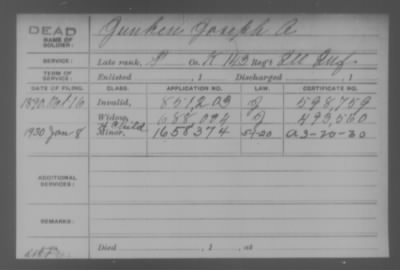 DEAD
NAME OF SOLDIER: Junken Joseph A
SERVICE: Late rank, P Co. K, 143 Reg't Ill Inf.
TERM OF SERVICE: Enlisted , 1 Discharged , 1
DATE OF FILING. CLASS. APPLICATION NO. LAW. CERTIFICATE NO.
1890 Oct 16 Invalid, 851203 598,759
Widow, 688,094 493,560
1930 Jan 8 H Child Minor, 1658374 5-1-20 A3-20-30
ADDITIONAL SERVICES:
REMARKS:
Died , 1 , at